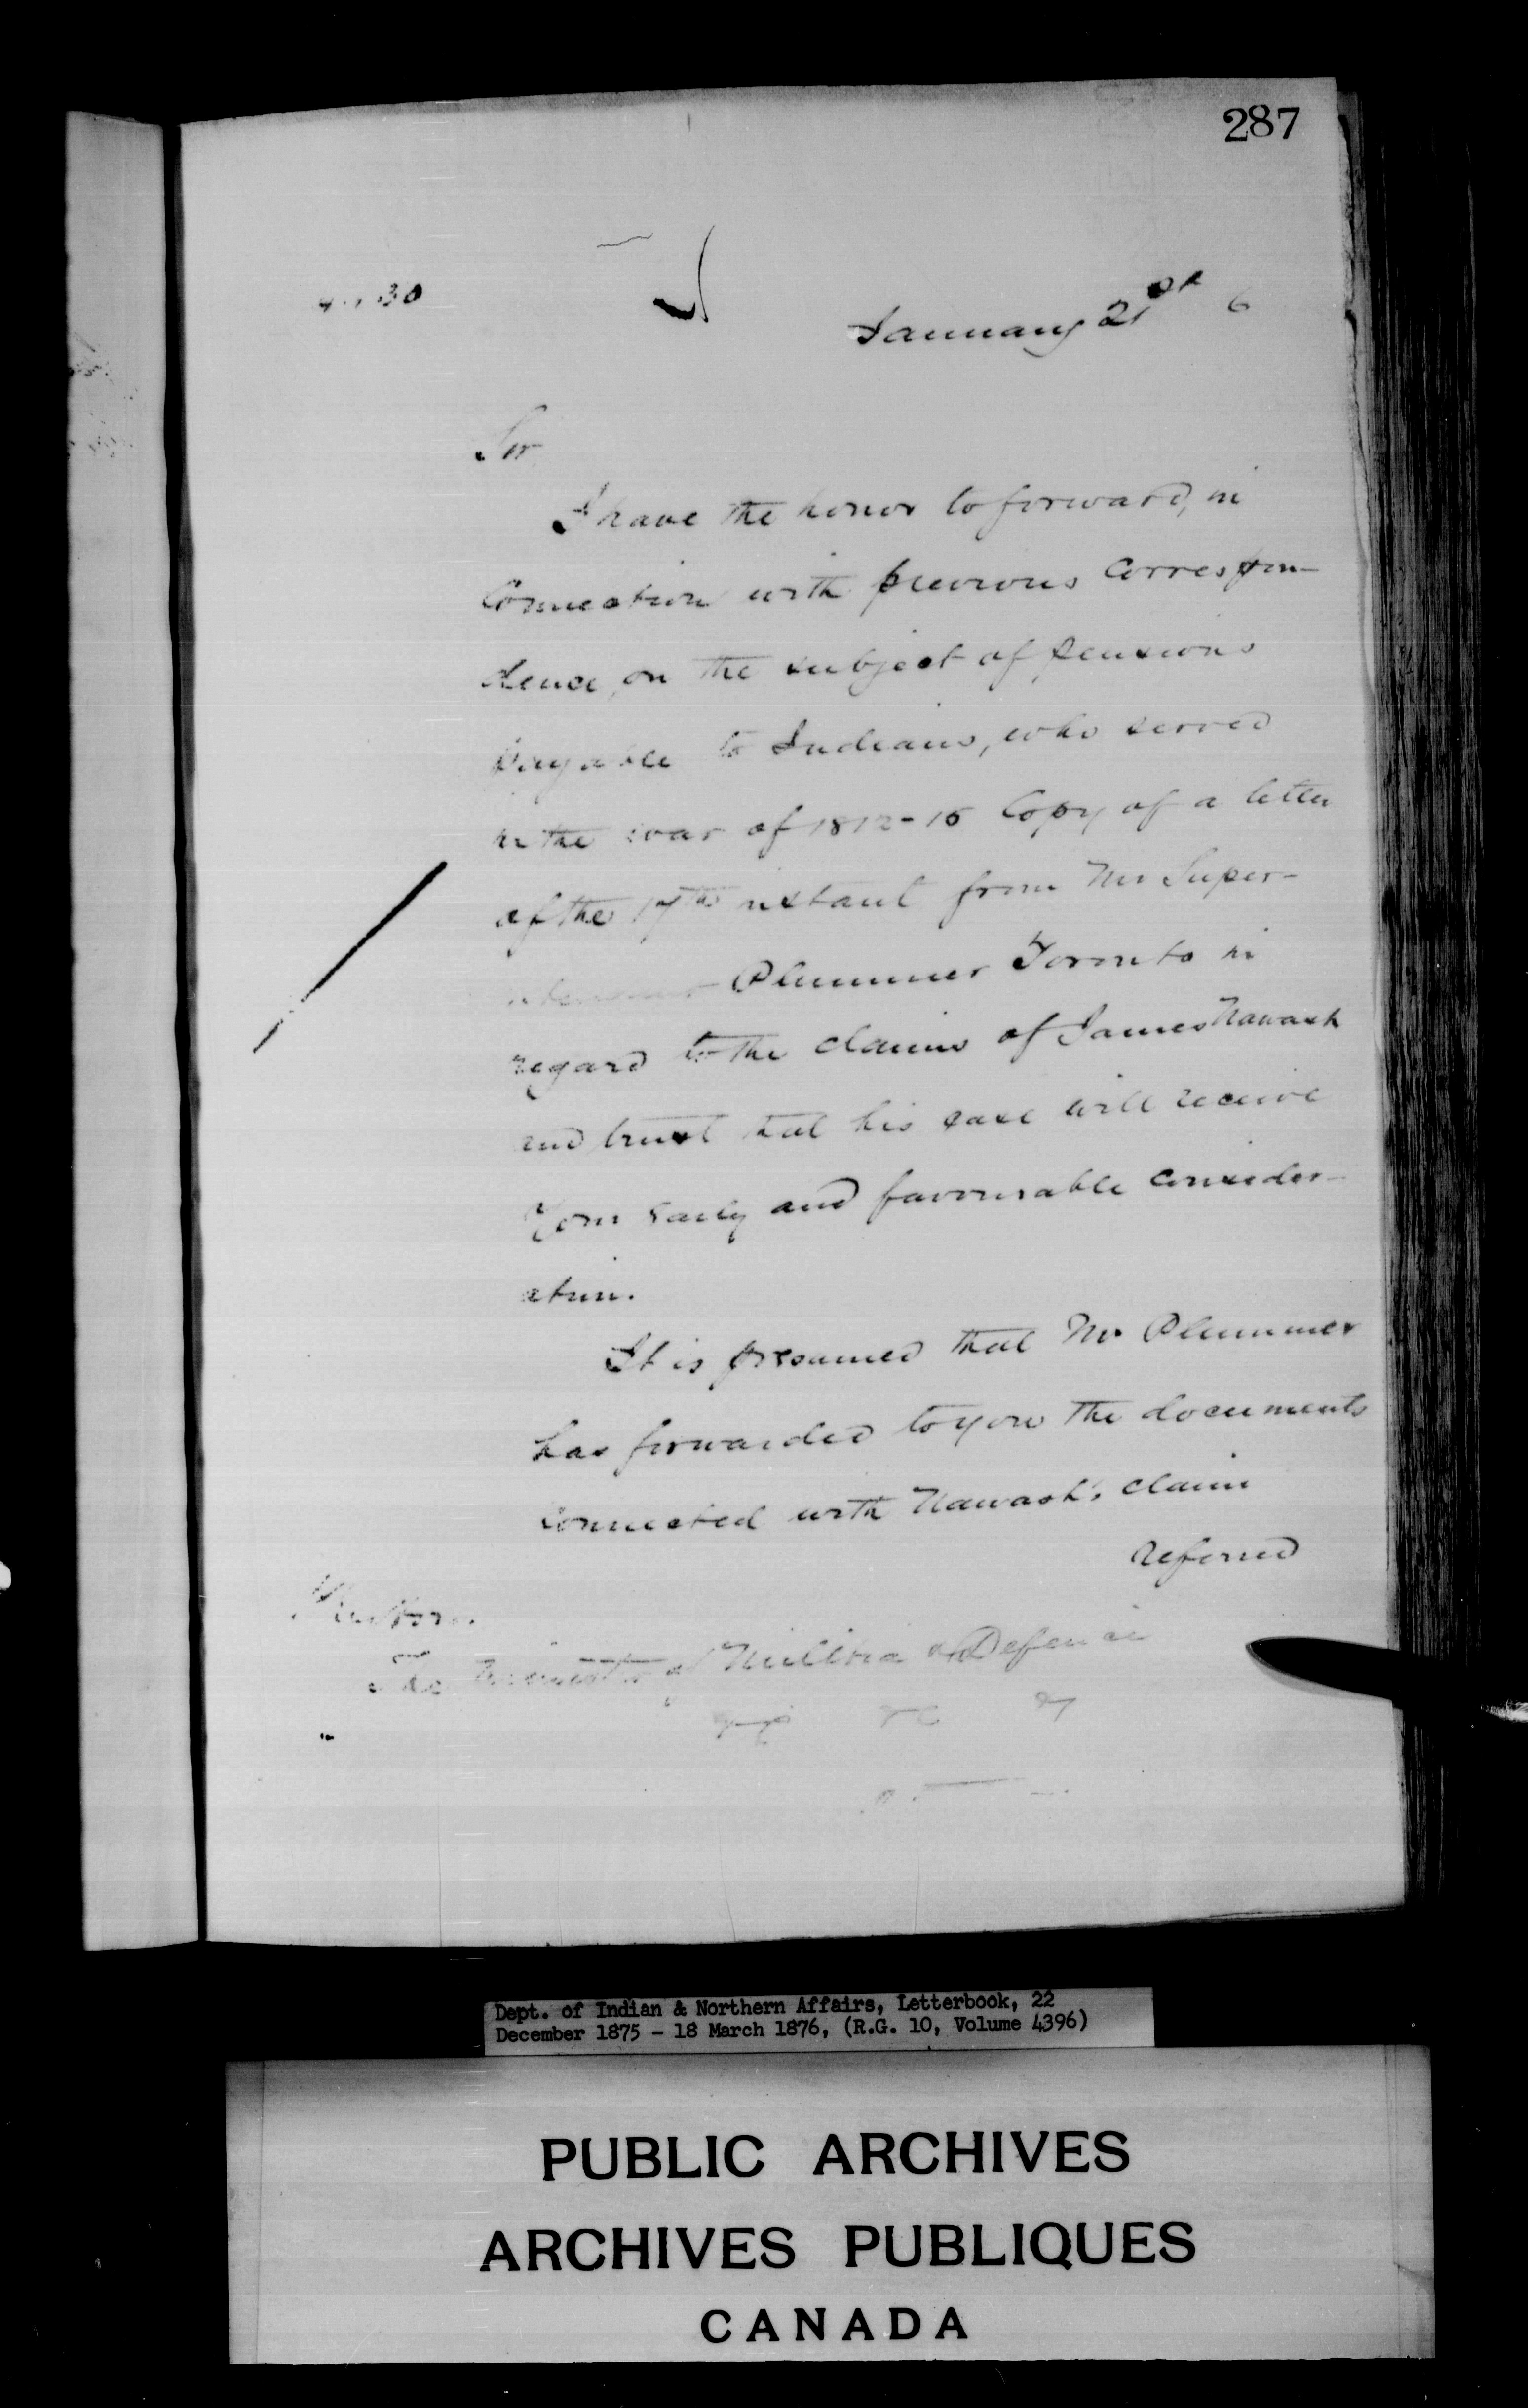 287
January 21st 6
Sir
I have the honor to forward, in
Connection with previous Correspon-
dence, on the subject of pensions
payable to Indians, who served
in the war of 1812-15 Copy of a letter
of the 17th instant from Mr Super-
intendent Plummer Toronto in
regard to the claims of James Nawash
and trust that his case will receive
Your early and favourable consider-
ation.
It is presumed that Mr Plummer
has forwarded to you the documents
connected with Nawash's claim
referred
The Minister of Militia & Defence
&c &c &c
Dept. of Indian & Northern Affairs, Letterbook, 22
December 1875 - 18 March 1876, (R.G. 10, Volume 4396)
PUBLIC ARCHIVES
ARCHIVES PUBLIQUES
CANADA